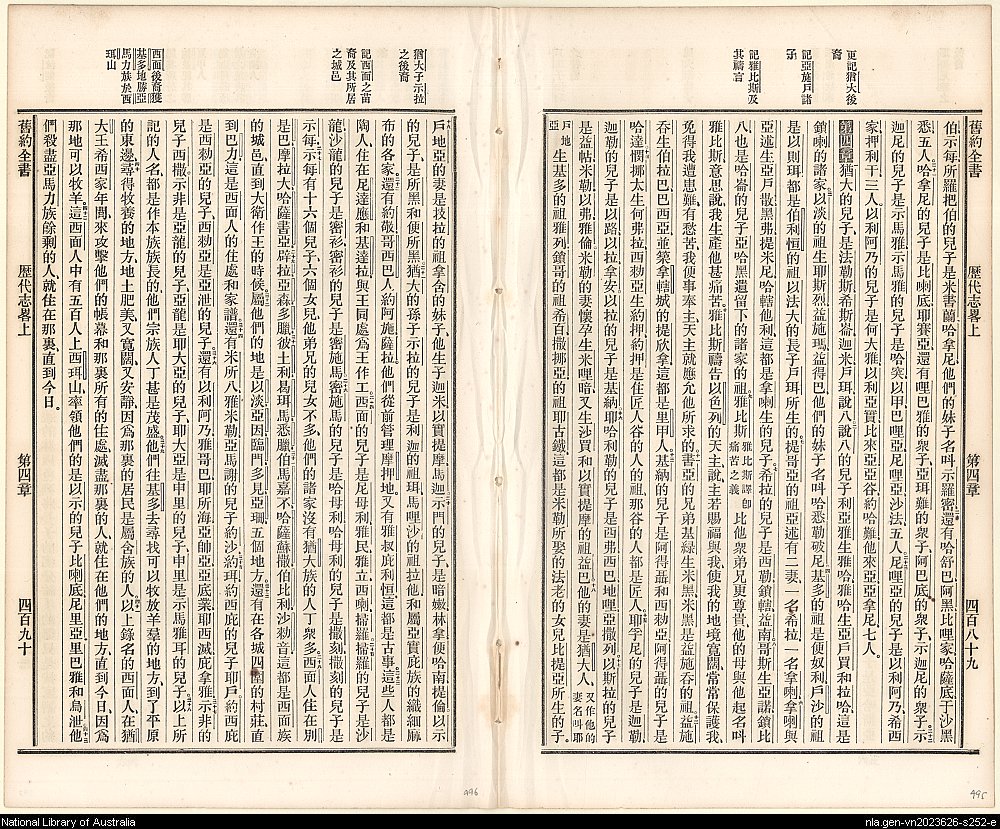 更記猶大後
裔
記亞施戶諸
子
記雅比斯及
其禱言
舊約全書 歷代志畧上 第四章 四百八十九
伯示每、所羅把伯的兒子是米書蘭哈拿尼他們的妹子名叫示羅密、還有哈舒巴阿黑比哩家哈薩底于沙黑
悉五人、哈拿尼的兒子是比喇底耶賽亞還有哩巴雅的衆子、亞珥難的衆子、阿巴底的衆子、示迦尼的衆子、示
迦尼的兒子是示馬雅示馬雅的兒子是哈突以甲巴哩亞尼哩亞沙法五人、尼哩亞的兒子是以利阿乃、希西
家、押利于三人、以利阿乃的兒子是何大雅以利亞實比來亞亞谷約哈難他來亞亞拿尼七人。
第四章猶大的兒子、是法勒斯希斯崙迦米戶珥說八說八的兒子利亞雅生雅哈雅哈生亞戶買和拉哈這是
鎖喇的諸家以淡的祖生耶斯烈益施瑪益得巴他們的妹子名叫哈悉勒破尼基多的祖是便奴利戶沙的祖
是以則珥都是伯利恒的祖以法大的長子戶珥所生的、提哥亞的祖亞施述有二妻一名希拉一名拿喇拿喇與
亞述生亞戶散黑弗提米尼哈轄他利這都是拿喇生的兒子、希拉的兒子是西勒鎖轄益南哥斯生亞諾鎖比
八也是哈崙的兒子亞哈黑遺留下的諸家的祖雅比斯 雅比斯譯即痛苦之義 比他衆弟兄更尊貴他的母與他起名叫
雅比斯意思說、我生產他甚痛苦、雅比斯禱告以色列的天主、說、主若賜福與我使我的地境寬闊常常保護我、
免得我遭患難、有愁苦、我便事奉主、天主就應允他所求的、書亞的兄弟基綠生米黑米黑是益施吞的祖益施
吞生伯拉巴巴西亞並築拿轄城的提欣拿這都是里甲人、基納的兒子是阿得聶和西勒亞阿得聶的兒子是
哈達、憫挪太生何弗拉西勒亞生約押約押是住匠人谷的人的祖那谷的人都是匠人、耶孚尼的兒子是迦勒
迦勒的兒子是以路以拉拿安以拉的兒子是基納、耶哈利勒的兒子是西弗西巴地哩亞撒列、以斯拉的兒子
是益帖米勒以弗雅倫米勒的妻懷孕生米哩暗、又生沙買和以實提摩的祖益巴他的妻是猶大人、又作他的妻名叫耶
戶地亞 生基多的祖雅列鎖哥的祖希百撒挪亞的祖耶古鐵這都是米勒所娶的法老的女兒比提亞所生的子、
猶大子示拉
之後裔
記西面之苗
裔及其所居
之城邑
西面後裔獲
基多地勝亞
馬力族於西
珥山
戶地亞的妻是技拉的祖拿含的妹子他生子迦米以實提摩馬迦、示門的兒子是暗嫩林拿便哈南提倫以示
的兒子是所黑和便所黑、猶大的孫子示拉的兒子是利迦的祖珥、馬哩沙的祖拉他和屬亞實庇族的織細蔴
布的各家、還有約敬哥西巴人約阿施薩拉他們從前管理摩押地、又有雅叔庇利恒這都是古事、這些人都是
陶人住在尼達應和基達拉與王同處為王作工、西面的兒子是尼母利雅民雅立西喇掃羅、掃羅的兒子是沙
龍沙龍的兒子是密衫密衫的兒子是密施馬、密施馬的兒子是哈母利哈母利的兒子是撒刻撒刻的兒子是
示每、示每有十六個兒子、六個女兒、他弟兄的兒女不多、他們的諸家沒有猶大族的人丁衆多、西面人住在別
是巴摩拉大哈薩書亞、辟拉亞森多臘、彼土利曷珥馬悉臘、伯馬嘉不哈薩蘇撒伯比利沙勑音這都是西面族
的城邑、直到大衛作王的時候、屬他們的地是以淡亞因臨門多見亞珊五個地方、還有在各城四圍的村莊、直
到巴力這是西面人的住處和家譜、還有米所八雅米勒亞馬謝的兒子約沙約珥約西庇的兒子耶戶約西庇
是西勑亞的兒子西勑亞是亞泄的兒子、還有以利阿乃雅哥巴耶所海亞帥亞亞底業耶西滅庇拿雅示非的
兒子西撒示非是亞龍的兒子亞龍是耶大亞的兒子耶大亞是申里的兒子申里是示馬雅的兒子、以上所
記的人名都是作本族族長的、他們宗族人丁甚是茂盛、他們往基多去尋找可以牧放羊羣的地方到了平原
的東邊、尋得牧養的地方、地土肥美、又寬闊、又安靜、因為那裏的居民是屬含族的人、以上錄名的西面人、在猶
大王希西家年間、來攻擊他們的帳幕和那裏所有的住處、滅盡那裏的人、就住在他們的地方、直到今日、因為
那地可以牧羊、這西面人中有五百人上西珥山、率領他們的是以示的兒子比喇底尼里亞里巴雅和烏泄他
們殺盡亞馬力族餘剩的人、就住在那裏、直到今日。
舊約全書 歷代志畧上 第四章 四百九十
496
495
National Library of Australia
nla.gen-vn2023626-s252-e